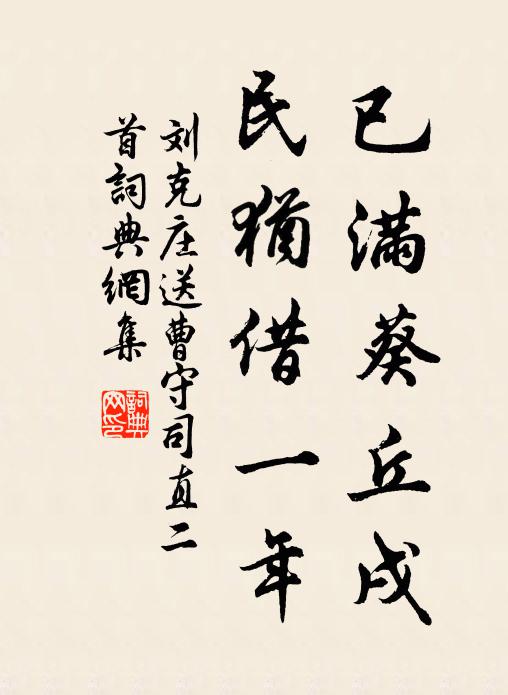 已满葵丘戍
民犹借一年
刘克庄送曹守司直二
首詞典網集
詞典
网印